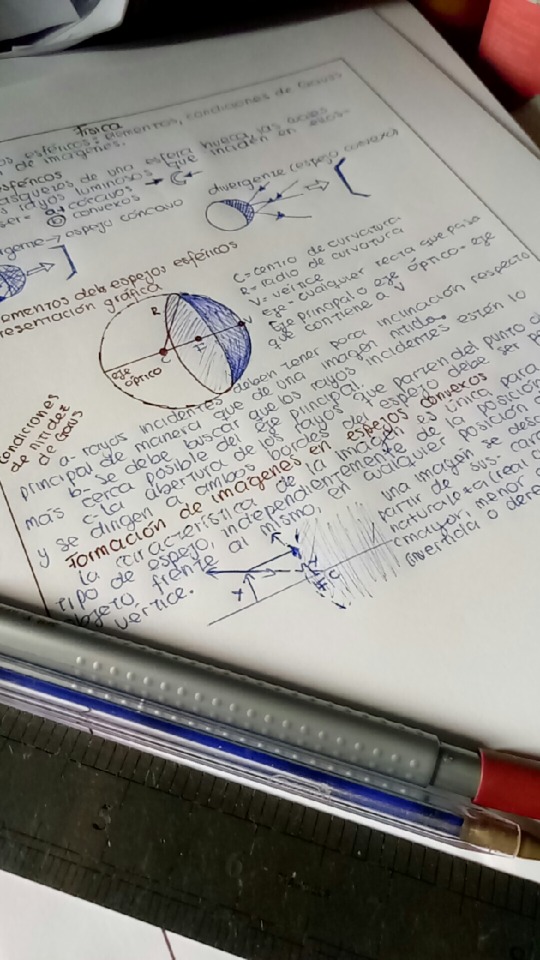 Física
os esféricos: elementos, condiciones de Gauss
de imágenes.
sféricos
asquetes de una esfera hueca, las cuales
s rayos luminosos que inciden en ellos
ser= a) cóncavos
b) convexos
divergente (espejo convexo)
espejo cóncavo
ementos de los espejos esféricos
resentación gráfica
R
C
F
V
eje óptico
C= centro de curvatura
R= radio de curvatura
V= vértice
Eje= cualquier recta que pasa
Eje principal o eje óptico= eje
que contiene a V
Condiciones
de nitidez
de Gauss
a- rayos incidentes deben tener para inclinación respecto
principal de manera que de una imagen nítida.
b- se debe buscar que los rayos incidentes estén lo
más cerca posible del eje principal.
c- la abertura de los rayos que parten del punto
y se dirigen a ambos bordes del espejo debe ser
Formación de imágenes en espejos convexos
la característica de la imagen es única para
tipo de espejo, independientemente de la posición
objeto frente al mismo, en cualquier posición
vértice.
una imagen se
partir de sus
naturaleza (real o
(mayor, menor
(invertida o